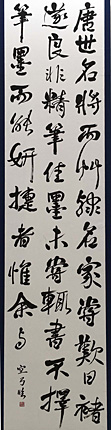 唐世名將而艸隸名家嘗歎曰褚
遂良非精筆佳墨未嘗輒書不擇
筆墨而能妍捷者惟余与